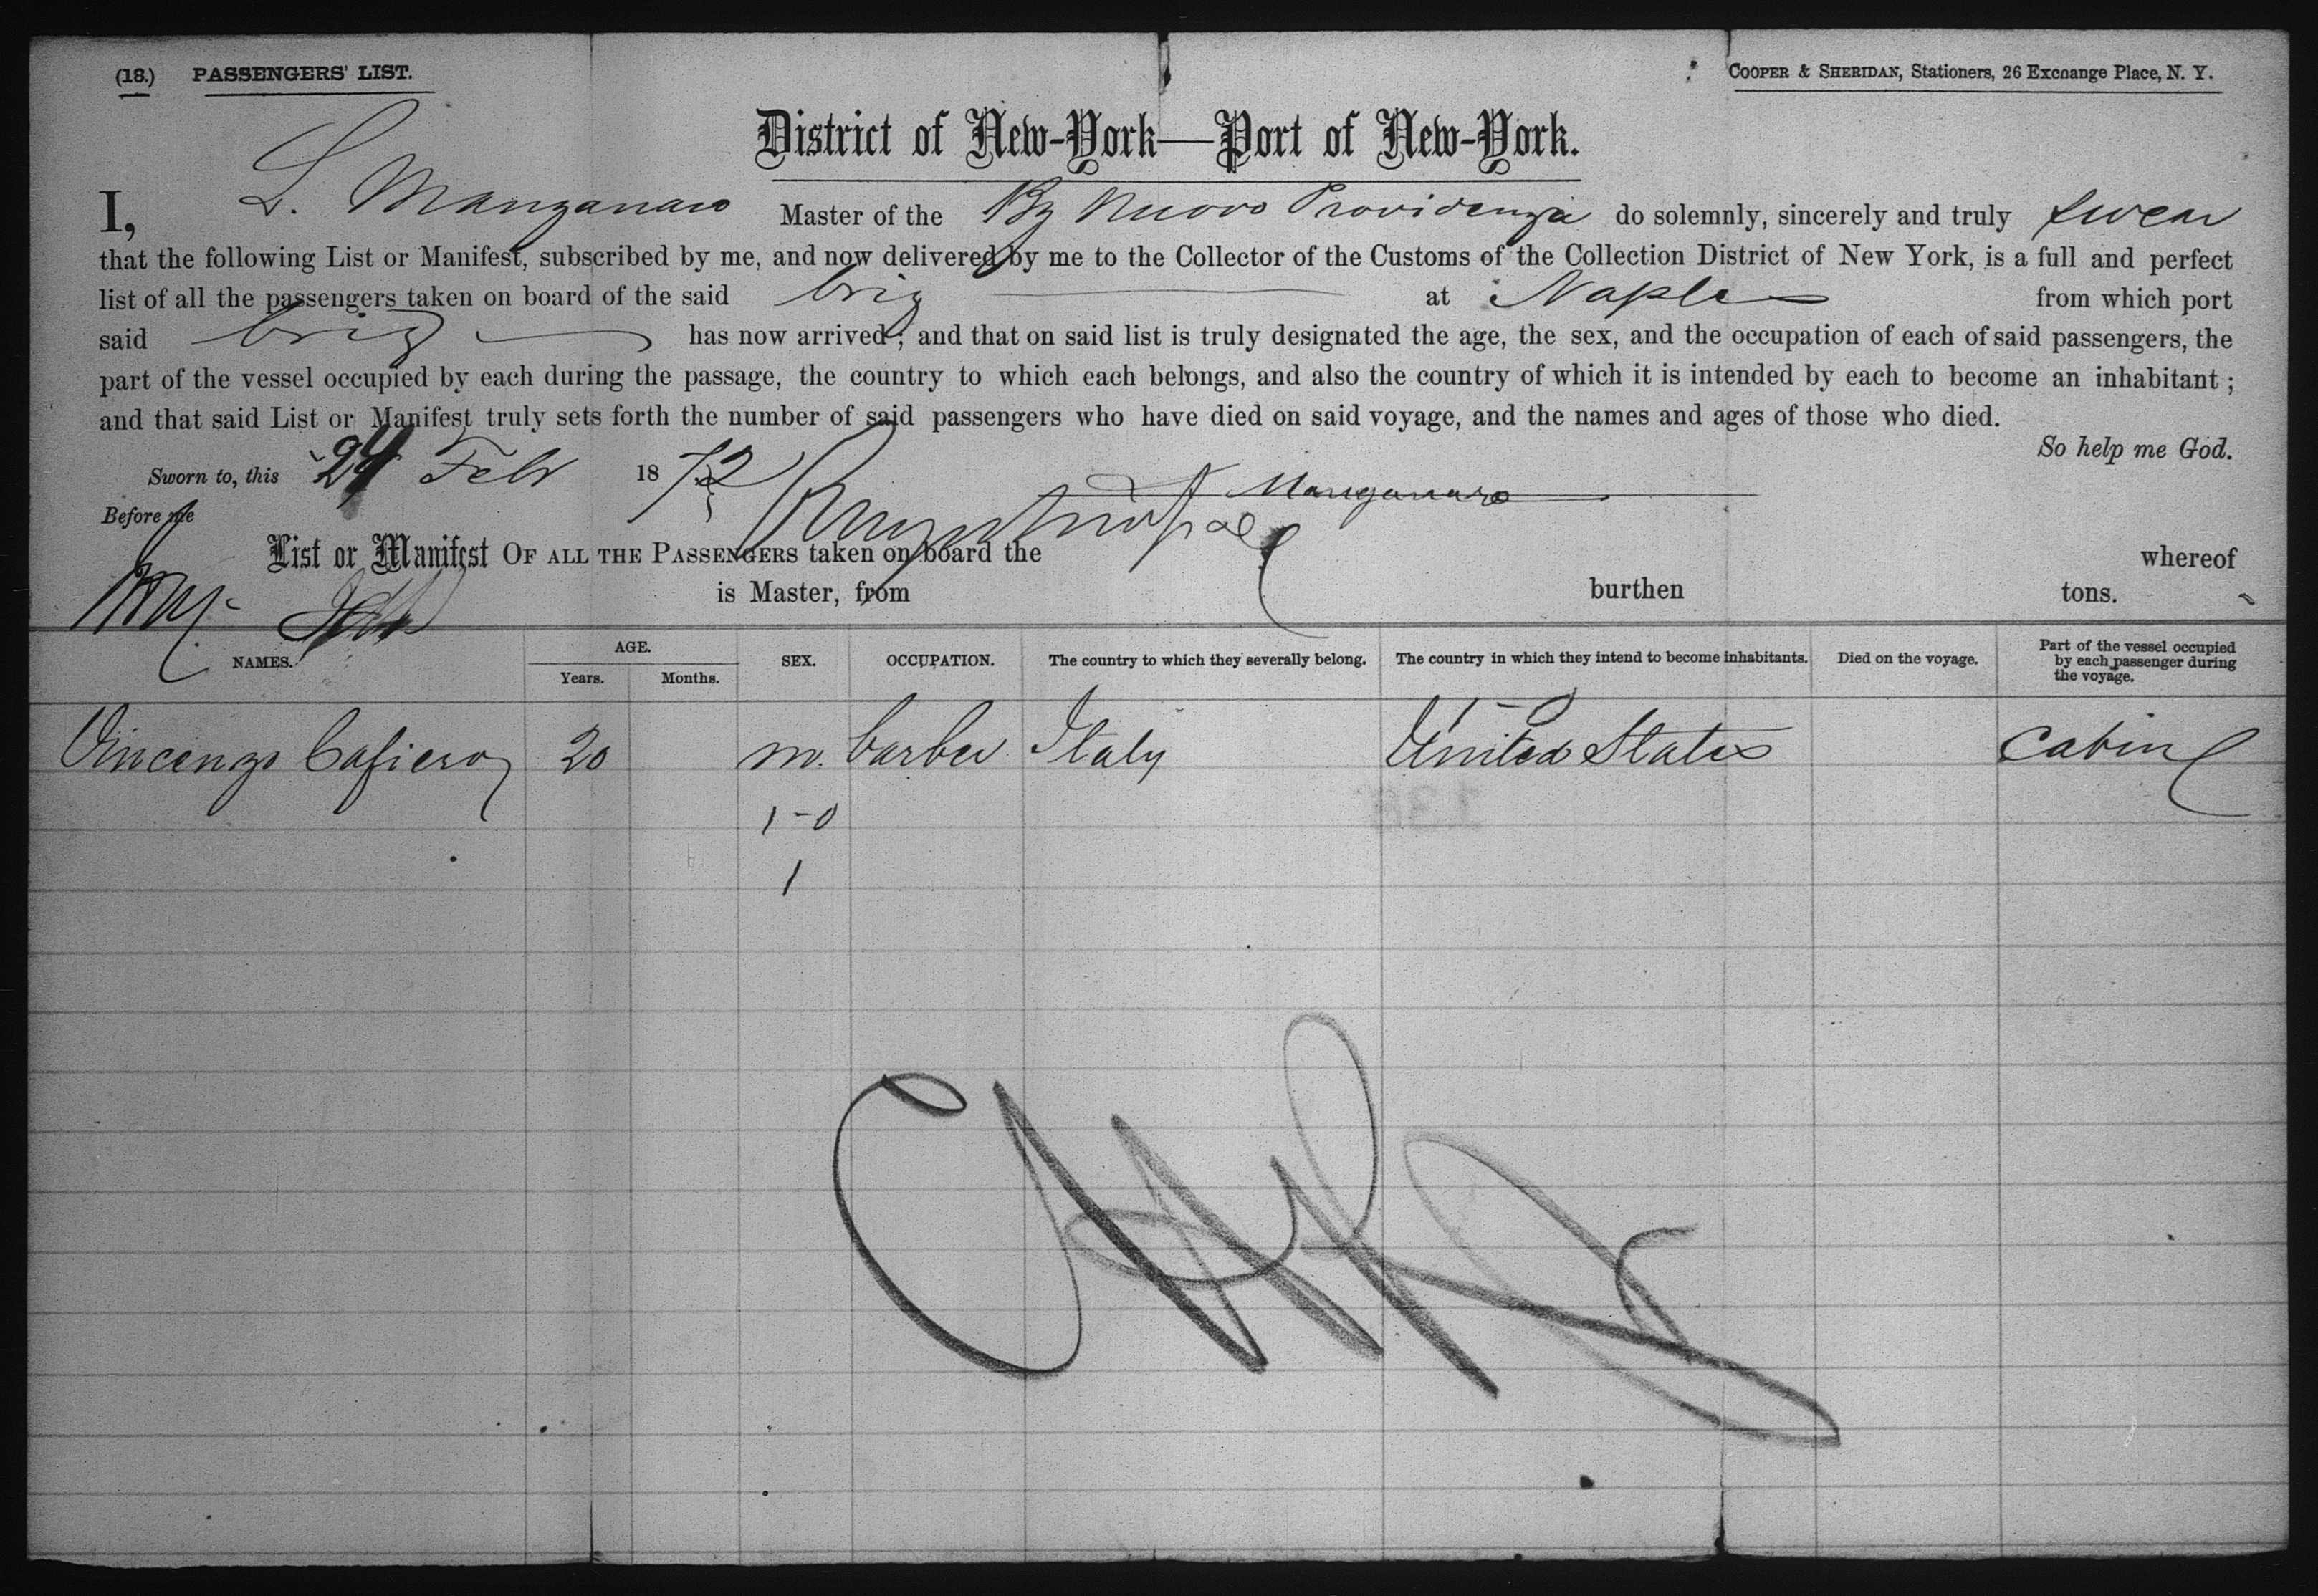 (18.) PASSENGERS' LIST.
COOPER & SHERIDAN, Stationers, 26 Exchange Place, N. Y.
District of New-York—Port of New-York.
I, L. Manganaro Master of the Bg Nuovo Providenza do solemnly, sincerely and truly swear
that the following List or Manifest, subscribed by me, and now delivered by me to the Collector of the Customs of the Collection District of New York, is a full and perfect
list of all the passengers taken on board of the said brig at Naples from which port
said brig has now arrived; and that on said list is truly designated the age, the sex, and the occupation of each of said passengers, the
part of the vessel occupied by each during the passage, the country to which each belongs, and also the country of which it is intended by each to become an inhabitant;
and that said List or Manifest truly sets forth the number of said passengers who have died on said voyage, and the names and ages of those who died.
So help me God.
Sworn to, this 24 Feb 1872
Manganaro
Before me
List or Manifest OF ALL THE PASSENGERS taken on board the whereof
is Master, from burthen tons.
NAMES. AGE. Years. Months. SEX. OCCUPATION. The country to which they severally belong. The country in which they intend to become inhabitants. Died on the voyage. Part of the vessel occupied by each passenger during the voyage.
1-0
Vincenzo Cafiero 20 m. barber Italy United States Cabin
1-0
1